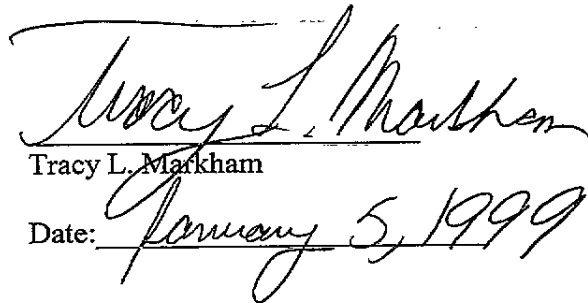 Tracy L. Markham
Tracy L. Markham
Date: January 5, 1999